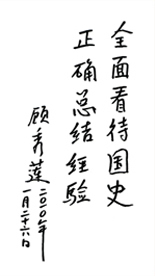 全面看待国史
正确总结经验
顾秀莲
二〇〇一年
一月二十六日